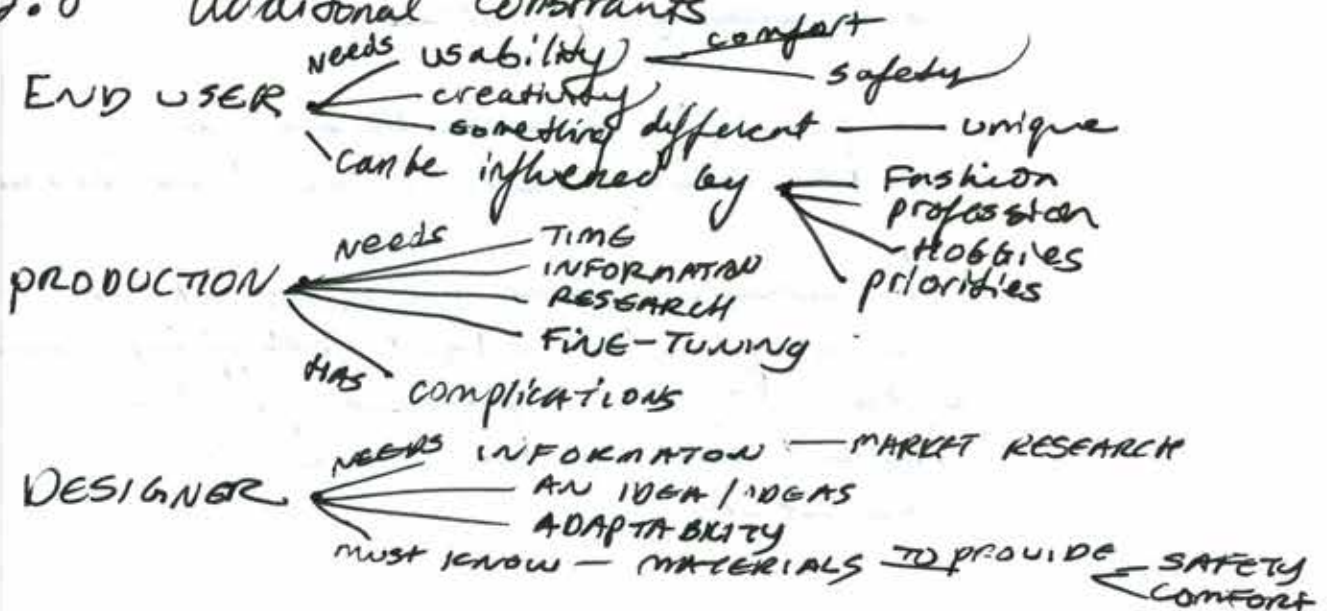 Additional Constraints
END USER
Needs usability comfort
safety
creativity
something different unique
can be influenced by Fashion
profession
HOBBIES
priorities
PRODUCTION
Needs TIME
INFORMATION
RESEARCH
FINE-TUNING
HAS complications
DESIGNER
NEEDS INFORMATON — MARKET RESEARCH
AN IDEA / IDEAS
ADAPTABILITY
MUST KNOW — MATERIALS TO PROVIDE SAFETY
COMFORT